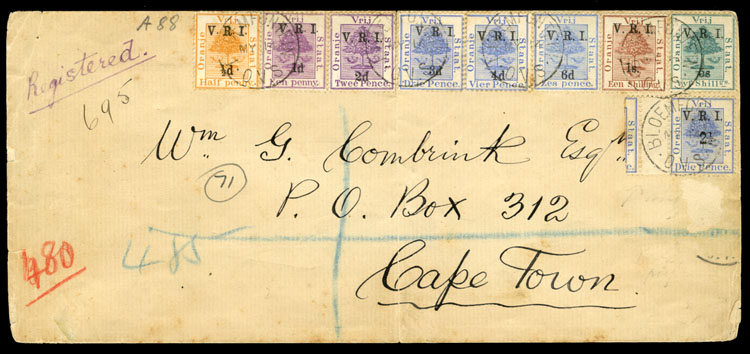 A 88
Registered.
695
Vrij V.R.I. ½d Oranje Staat Half penny.
Vrij V.R.I. 1d Oranje Staat Een penny.
Vrij V.R.I. 2d Oranje Staat Twee Pence.
Vrij V.R.I. 3d Oranje Staat Drie Pence.
Vrij V.R.I. 4d Oranje Staat Vier Pence.
Vrij V.R.I. 6d Oranje Staat Pence.
Vrij V.R.I. 1s. Oranje Staat Een Shilling.
Vrij V.R.I. Oranje Staat Shill
Vrij V.R.I. 2½ Oranje Staat Drie Pence.
BLOEMFO
Wm G. Combrinck Esqr
91
P. O. Box 312
480
485
Cape Town.